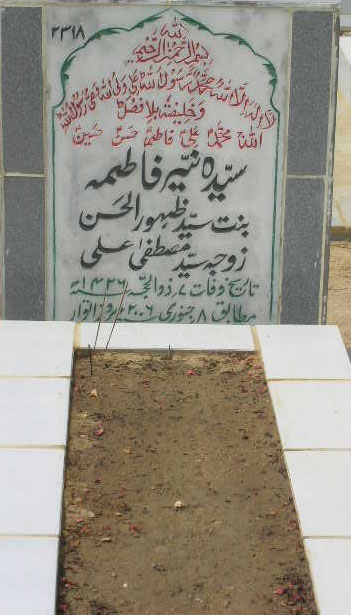 ۲۳۱۸
بسم اللہ الرحمن الرحیم
لا الہ الا اللہ محمد رسول اللہ علی ولی اللہ وصی رسول اللہ
وخلیفتہ بلا فصل
اللہ محمد علی فاطمہ حسن حسین
سیدہ نیّر فاطمہ
بنت سیّد ظہور الحسن
زوجہ سیّد مصطفیٰ علی
تاریخ وفات ۷ ذوالحجہ ۱۴۲۶ھ
مطابق ۸ جنوری ۲۰۰۶ء بروز اتوار